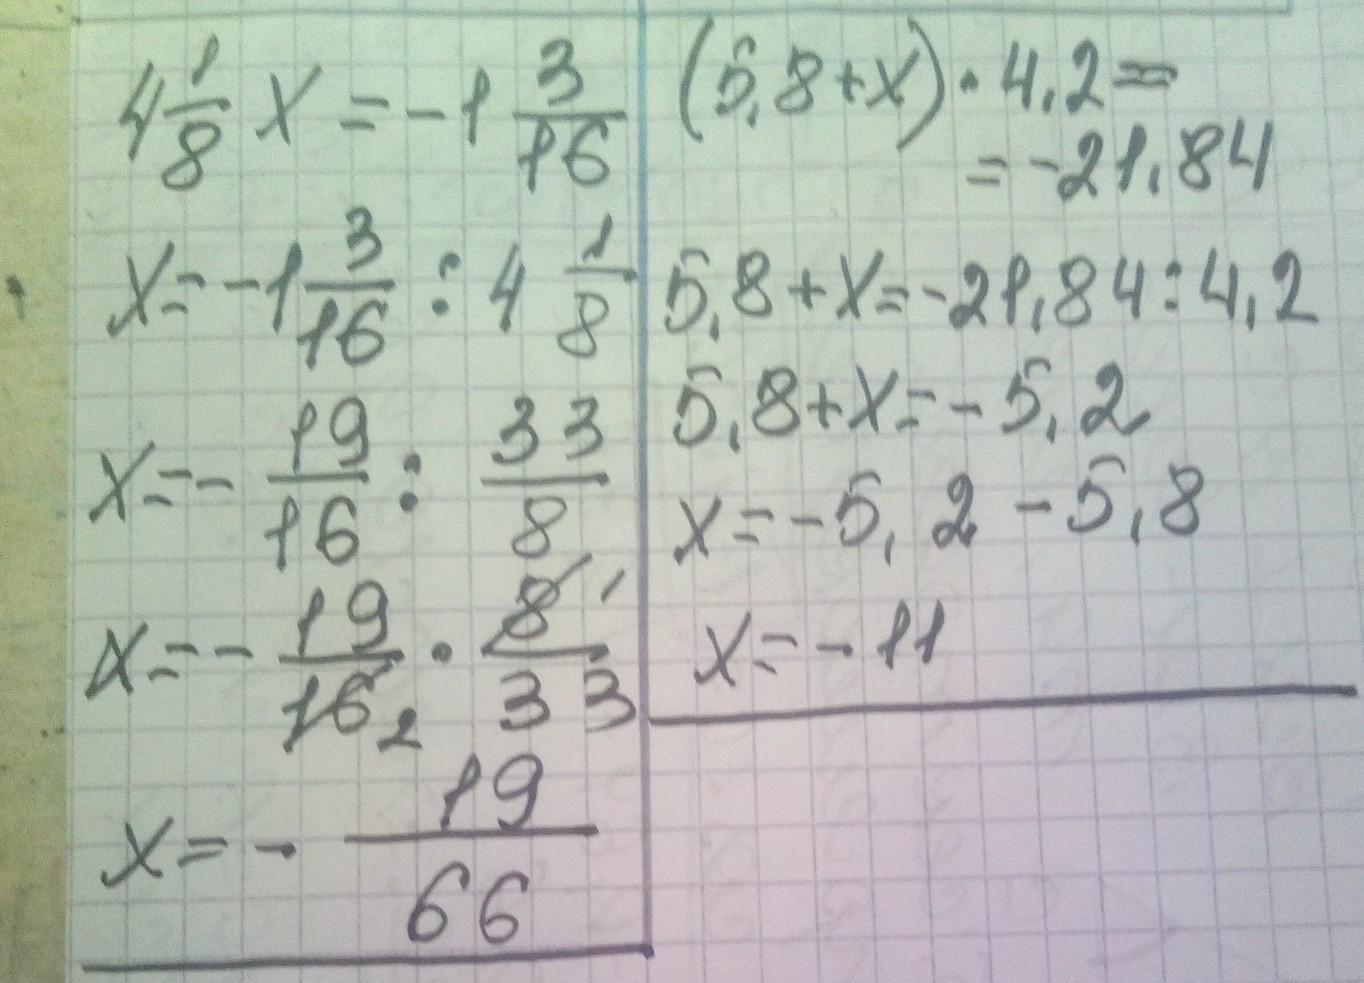 4 1/8 x = -1 3/16
x = -1 3/16 : 4 1/8
x = - 19/16 : 33/8
x = - 19/16 2 · 8 1/33
x = - 19/66
(5,8+x) · 4,2 =
= -21,84
5,8+x = -21,84 : 4,2
5,8+x = -5,2
x = -5,2 -5,8
x = -11